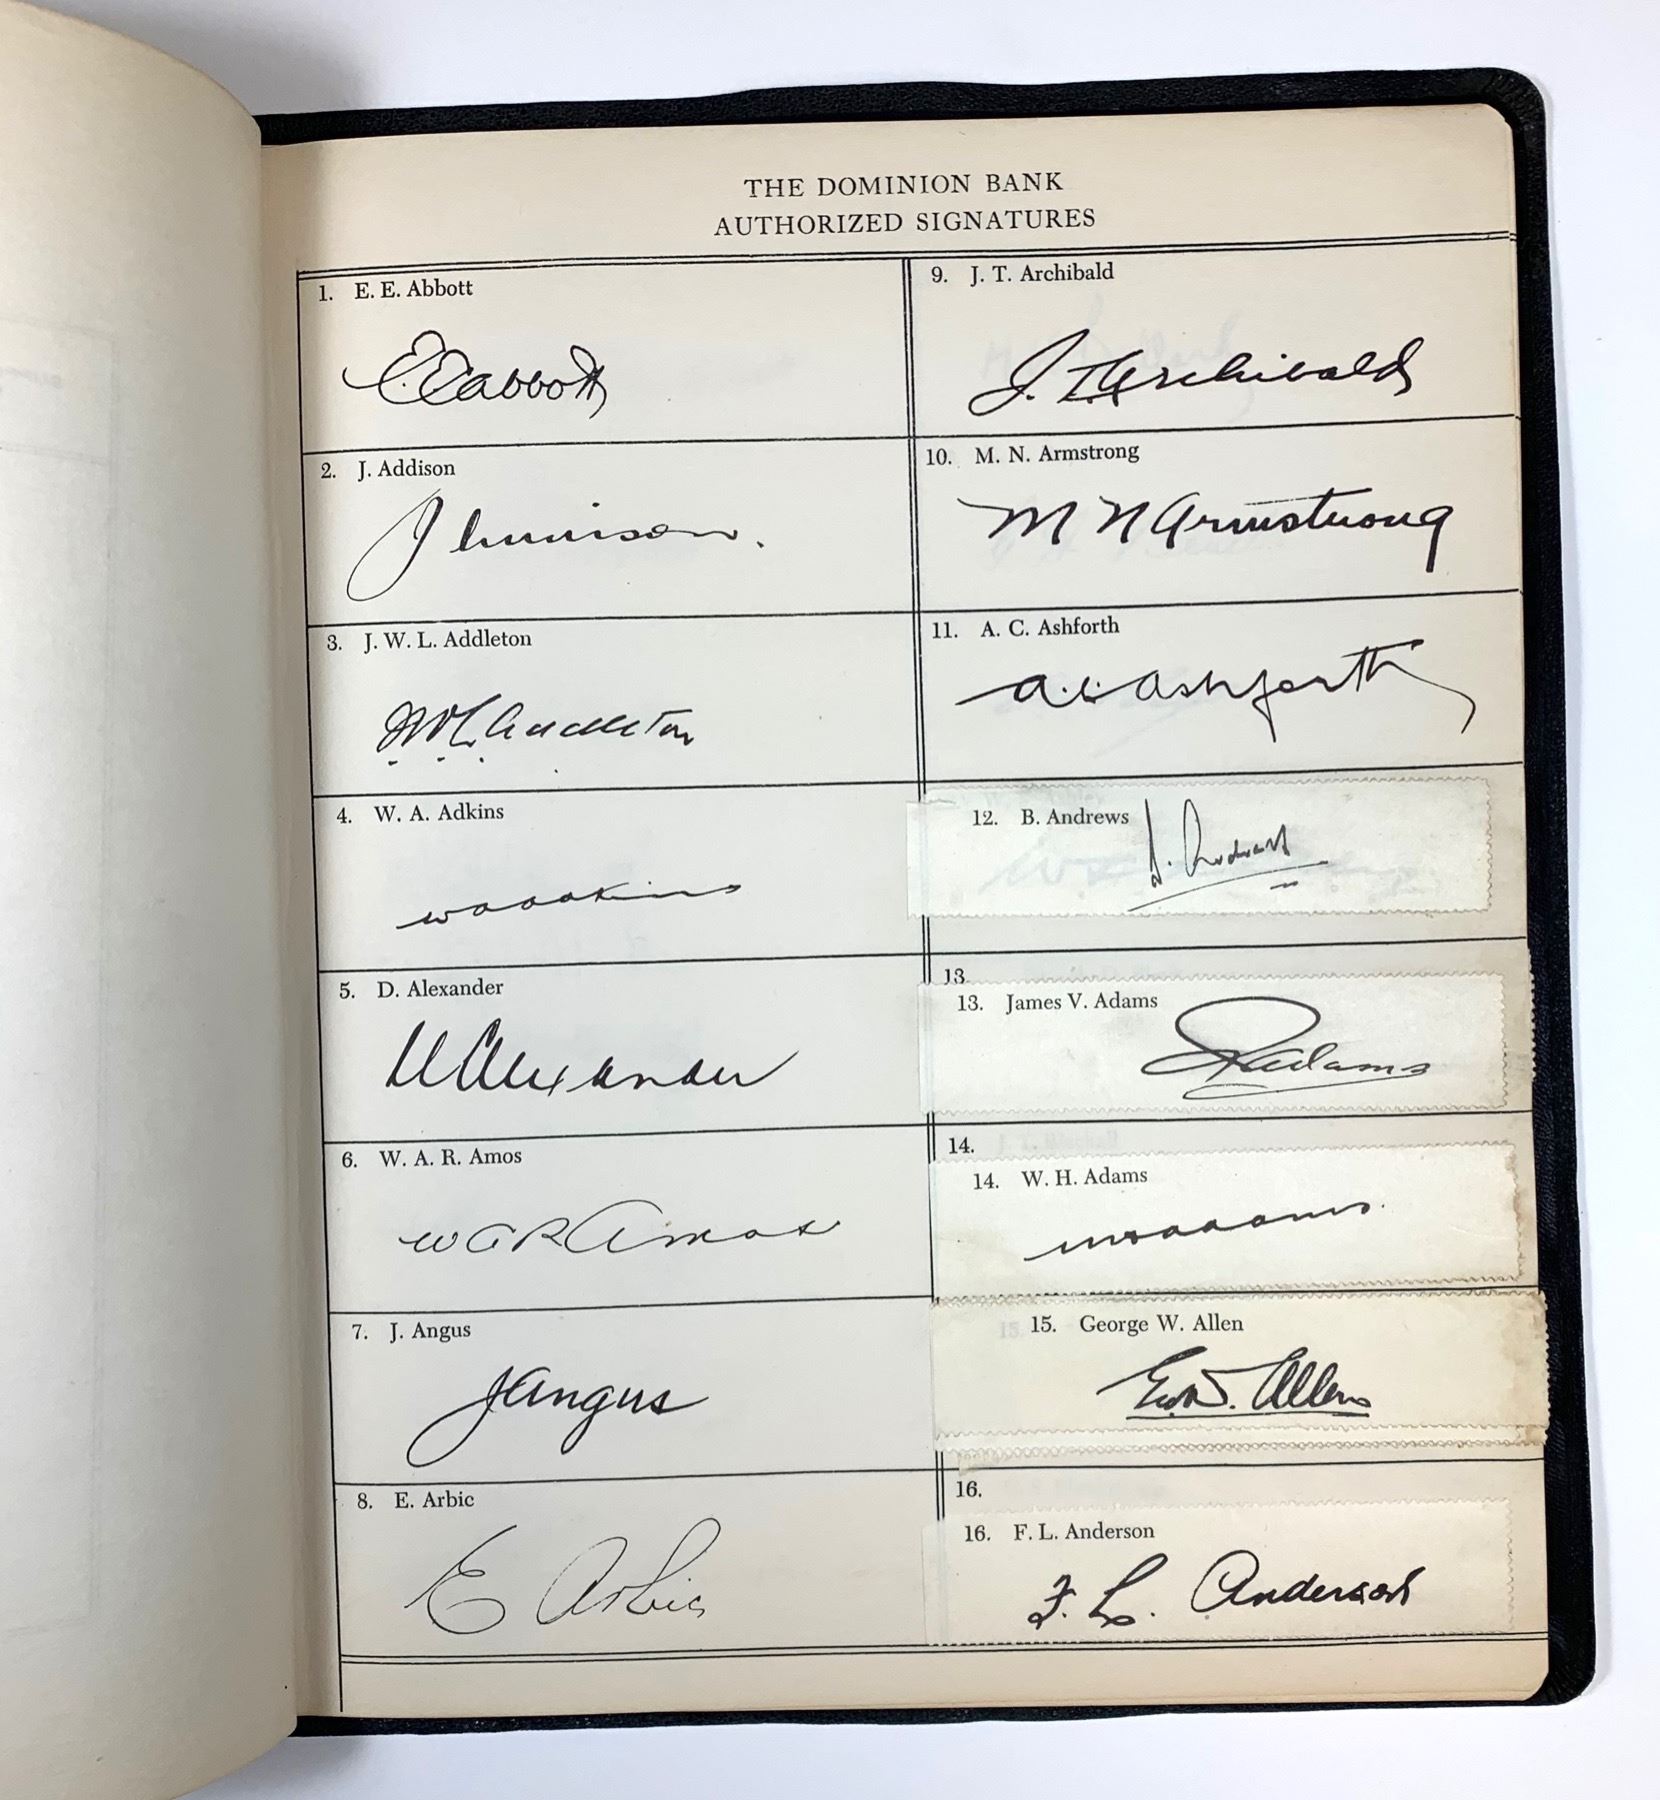 THE DOMINION BANK
AUTHORIZED SIGNATURES
1. E. E. Abbott
E. E. Abbott
2. J. Addison
J
3. J. W. L. Addleton
JWL Addleton
4. W. A. Adkins
W A Adkins
5. D. Alexander
D Alexander
6. W. A. R. Amos
W A R Amos
7. J. Angus
J Angus
8. E. Arbic
E Arbic
9. J. T. Archibald
J. T. Archibald
10. M. N. Armstrong
M N Armstrong
11. A. C. Ashforth
A. C. Ashforth
12. B. Andrews
B. Andrews
13.
13. James V. Adams
Adams
14.
14. W. H. Adams
W H Adams.
15.
15. George W. Allen
Geo W. Allen
16.
16. F. L. Anderson
F. L. Anderson